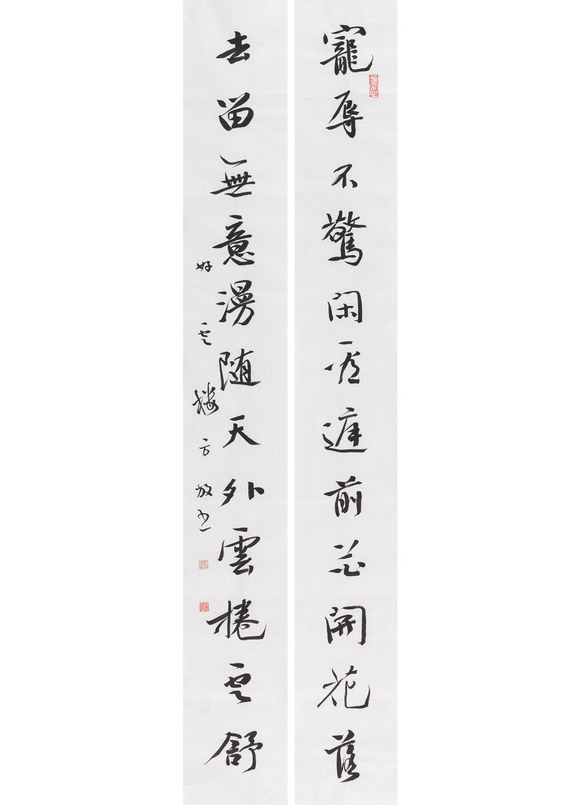 寵辱不驚閑看庭前花開花落
去留無意漫随天外雲捲雲舒
好雲樓方放書